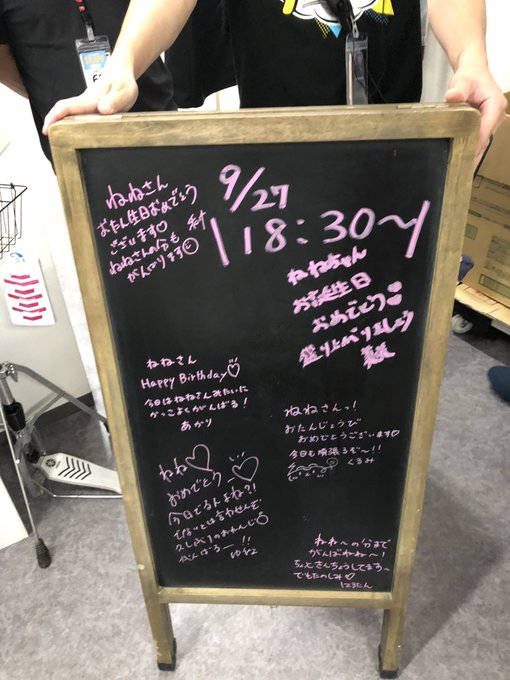 ねねさん
おたん生日おめでとう
ございます♡
ねねさんの分も
がんばります
9/27
18:30～
ねねちゃん
お誕生日
おめでとう
盛り上がりましょう
ねねさん
Happy Birthday♡
今日はねねさんみたいに
かっこよくがんばる!
あかり
ねねさんっ!
おたんじょうび
おめでとうございます♡
今日も頑張るぞ～!!
くるみ
ねね♡
おめでとう
今日でるんよね?!
でないとは言わせんぞ
がんばる～!!
ねね～の分まで
がんばねね～!
ちょときんちょうしてます～
でもたのしみ♡